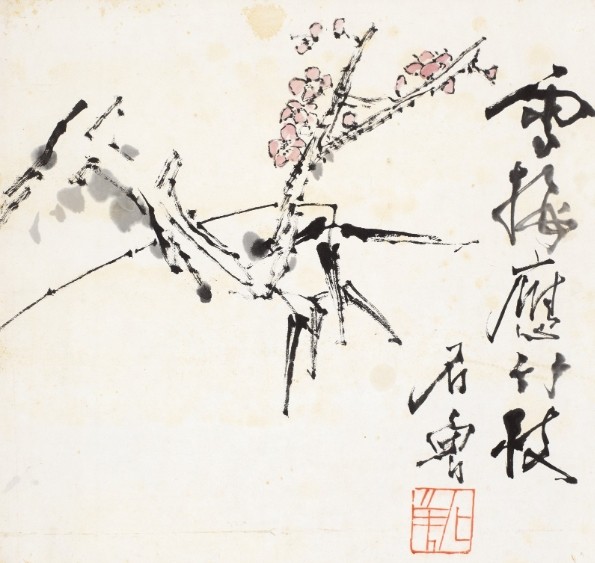 雪梅應竹枝
石魯